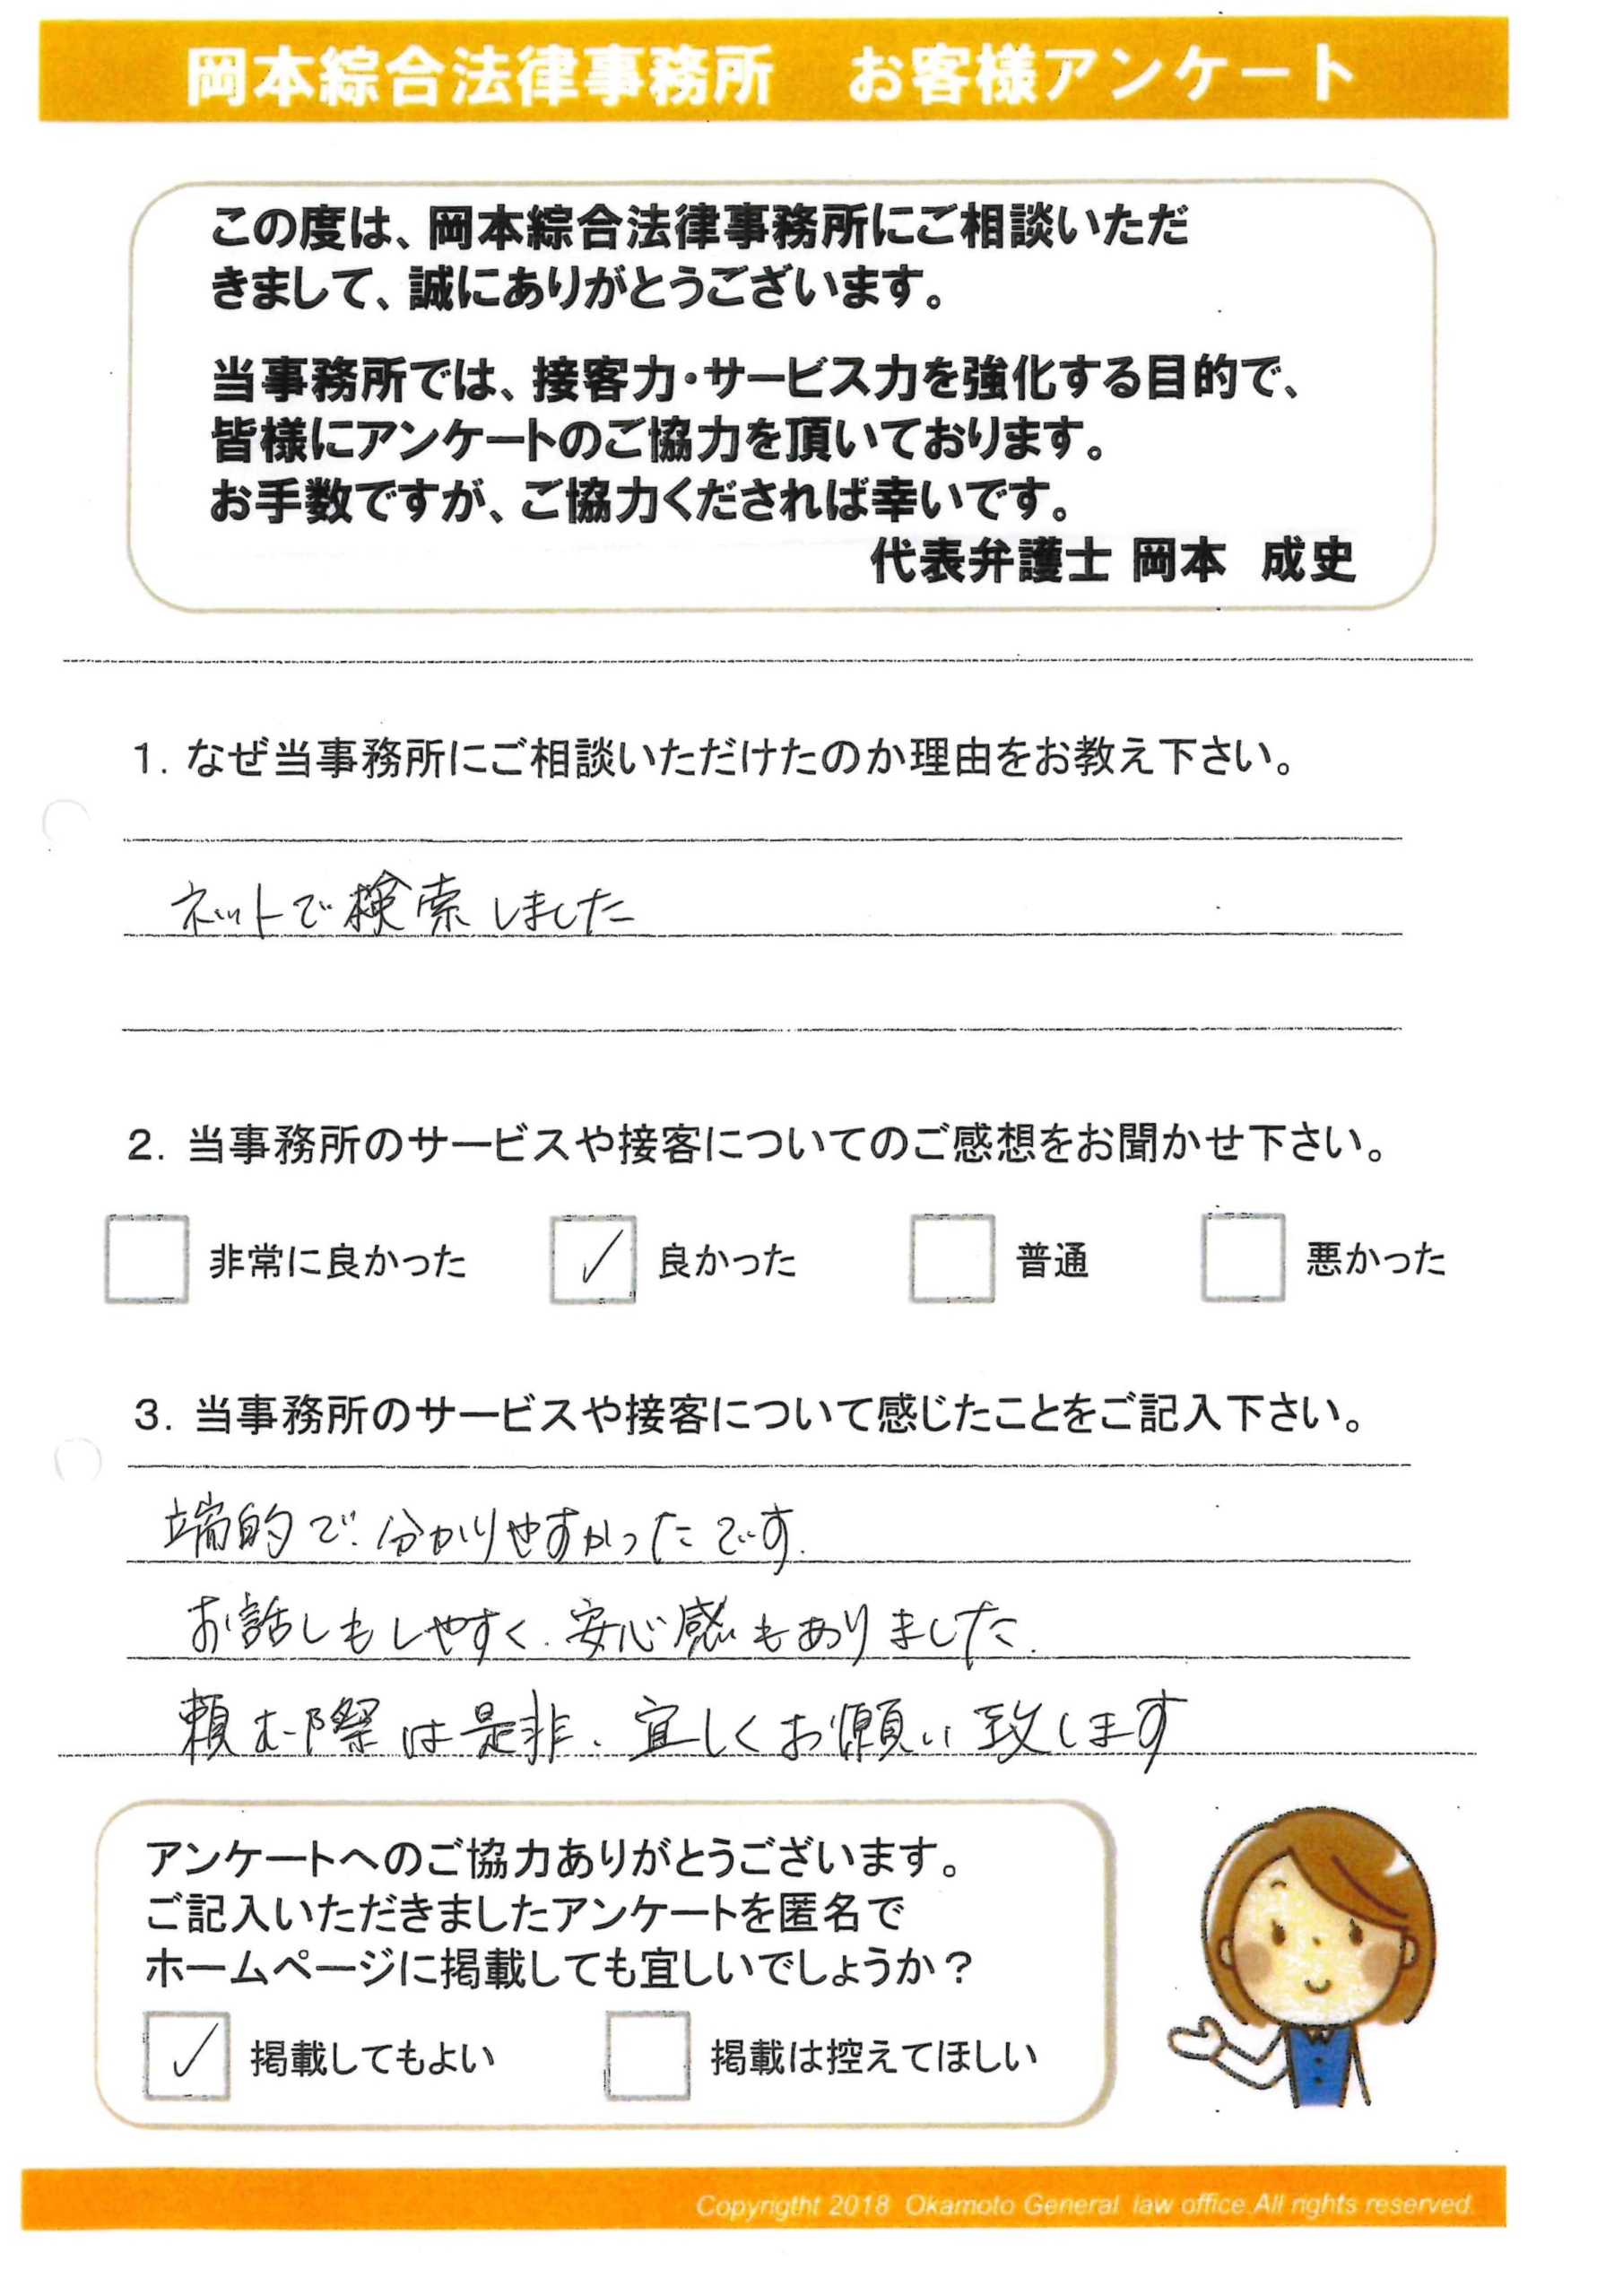 岡本綜合法律事務所　お客様アンケート
この度は、岡本綜合法律事務所にご相談いただ
きまして、誠にありがとうございます。
当事務所では、接客力・サービス力を強化する目的で、
皆様にアンケートのご協力を頂いております。
お手数ですが、ご協力くだされば幸いです。
代表弁護士 岡本　成史
1. なぜ当事務所にご相談いただけたのか理由をお教え下さい。
ネットで検索しました
2. 当事務所のサービスや接客についてのご感想をお聞かせ下さい。
非常に良かった　✓ 良かった　普通　悪かった
3. 当事務所のサービスや接客について感じたことをご記入下さい。
端的で、分かりやすかったです。
お話しもしやすく、安心感もありました。
頼む際は是非、宜しくお願い致します
アンケートへのご協力ありがとうございます。
ご記入いただきましたアンケートを匿名で
ホームページに掲載しても宜しいでしょうか？
✓ 掲載してもよい　掲載は控えてほしい
Copyrigtht 2018 Okamoto General law office.All rights reserved.